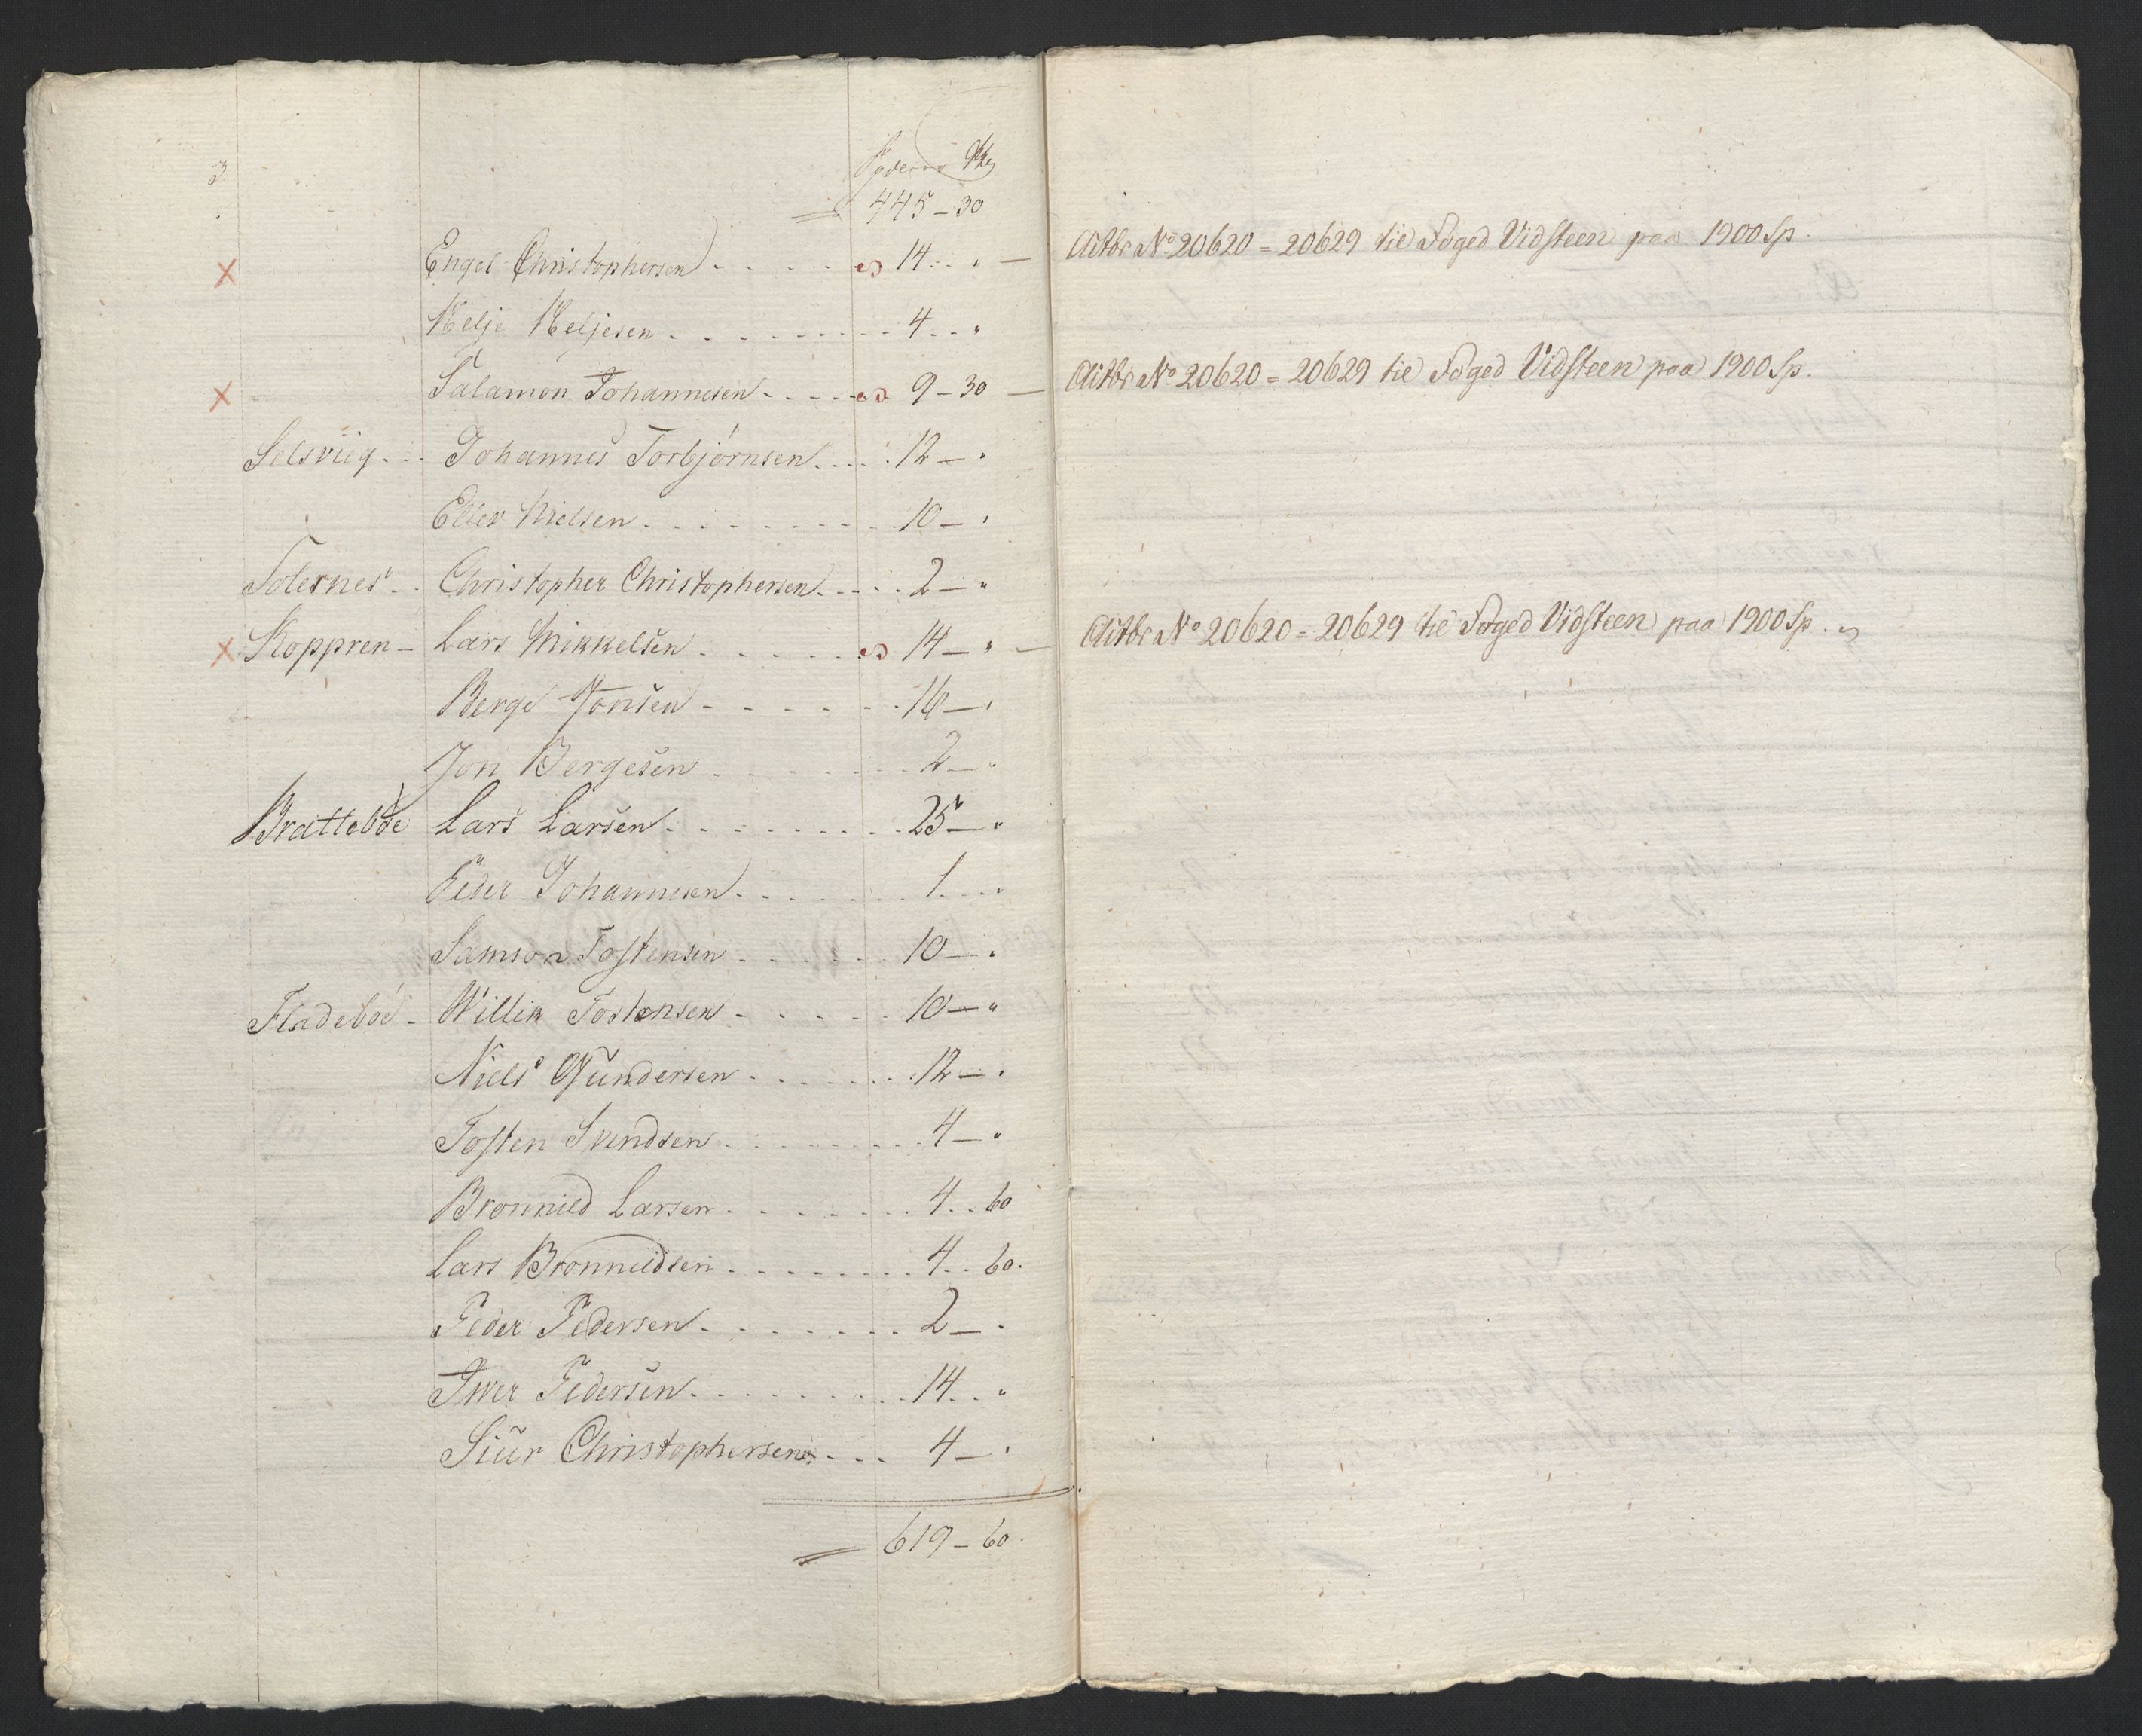 3
445 – 30
Engel Christophersen 14 "
Helje Heljesen 4 "
Salamon Johannesen 9 – 30
Selsviig Johannes Torbjørnsen 12 – "
Eller Nielsen 10 – "
Tolernes Christopher Christophersen 2 – "
Koppren – Lars Mikkelsen 14 – "
Berge Jonsen 16 – "
Jon Bergesen 2 – "
Bratteböe Lars Larsen 25 – "
Peder Johannesen 1 "
Samson Tostensen 10 – "
Fladeböe – Willik Tostensen 10 – "
Niels Gundersen 12 – "
Tosten Svendsen 4 – "
Bronnild Larsen 4 60
Lars Bronnildsen 4 60
Peder Pedersen 2 – "
Iwer Pedersen 14 "
Siur Christophersen 4 – "
619 – 60
No 20620 = 20629 til Foged Vidsteen paa 1900 Sp.
No 20620 = 20629 til Foged Vidsteen paa 1900 Sp.
No 20620 = 20629 til Foged Vidsteen paa 1900 Sp.